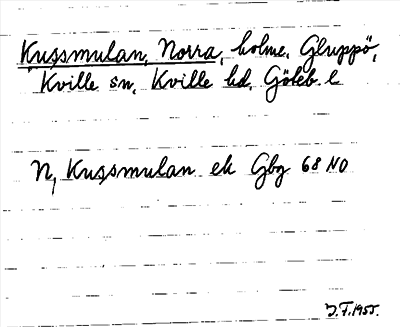 Kussmulan, Norra, holme, Gluppö,
Kville sn, Kville hd, Göteb. l
N, Kussmulan ek Gbg 68 NO
J.F. 1955.